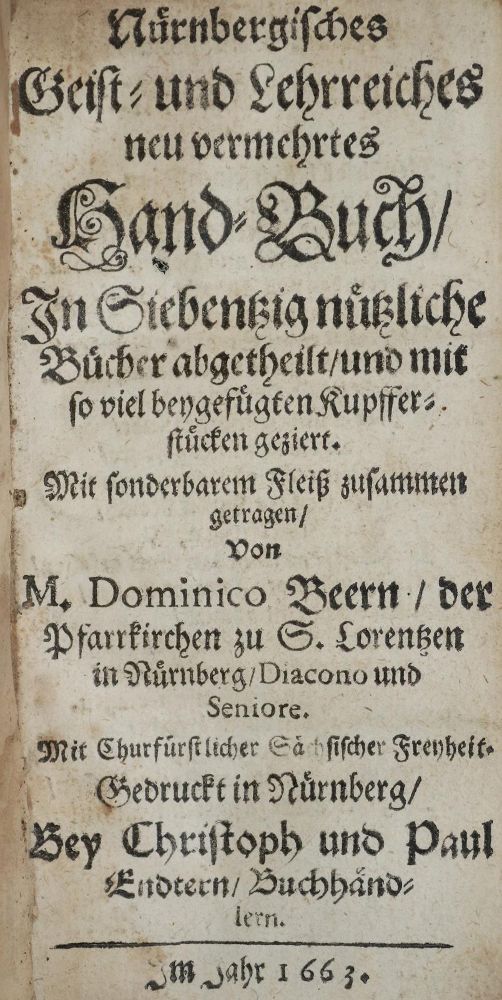 Nürnbergisches
Geist- und Lehrreiches
neu vermehrtes
Hand-Buch/
In Siebentzig nützliche
Bücher abgetheilt/und mit
so viel beygefügten Kupffer-
stücken geziert.
Mit sonderbarem Fleiß zusammen
getragen/
Von
M. Dominico Beern / der
Pfarrkirchen zu S. Lorentzen
in Nürnberg/Diacono und
Seniore.
Mit Churfürstlicher Sächsischer Freyheit.
Gedruckt in Nürnberg/
Bey Christoph und Paul
Endtern/ Buchhänd-
lern.
Im Jahr 1663.